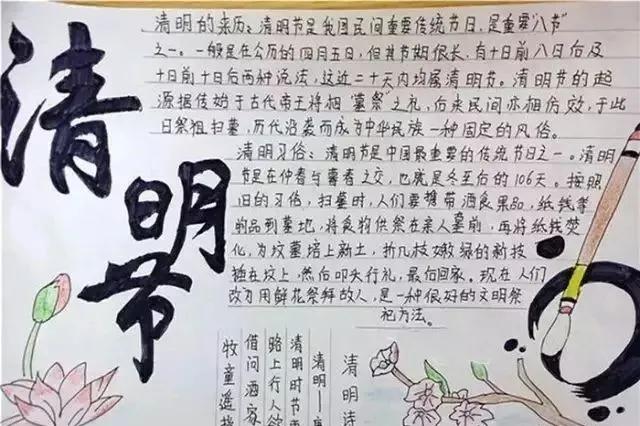 清明节
清明的来历：清明节是我国民间重要传统节日，是重要"八节"
之一。一般是在公历的四月五日，但其节期很长，有十日前八日后及
十日前十日后两种说法，这近二十天内均属清明节。清明节的起
源据传始于古代帝王将相"墓祭"之礼，后来民间亦相仿效，于此
日祭祖扫墓，历代沿袭而成为中华民族一种固定的风俗。
清明习俗：清明节是中国最重要的传统节日之一。清明
节是在仲春与暮春之交，也就是冬至后的106天。按照
旧的习俗，扫墓时，人们要携带酒食果品，纸钱等
物品到墓地，将食物供祭在亲人墓前，再将纸钱焚
化，为坟墓培上新土，折几枝嫩绿的新枝
插在坟上，然后叩头行礼，最后回家。现在人们
改为用鲜花祭拜故人，是一种很好的文明祭
祀方法。
清明诗
清明——
清明时节雨
路上行人欲
借问酒家
牧童遥指